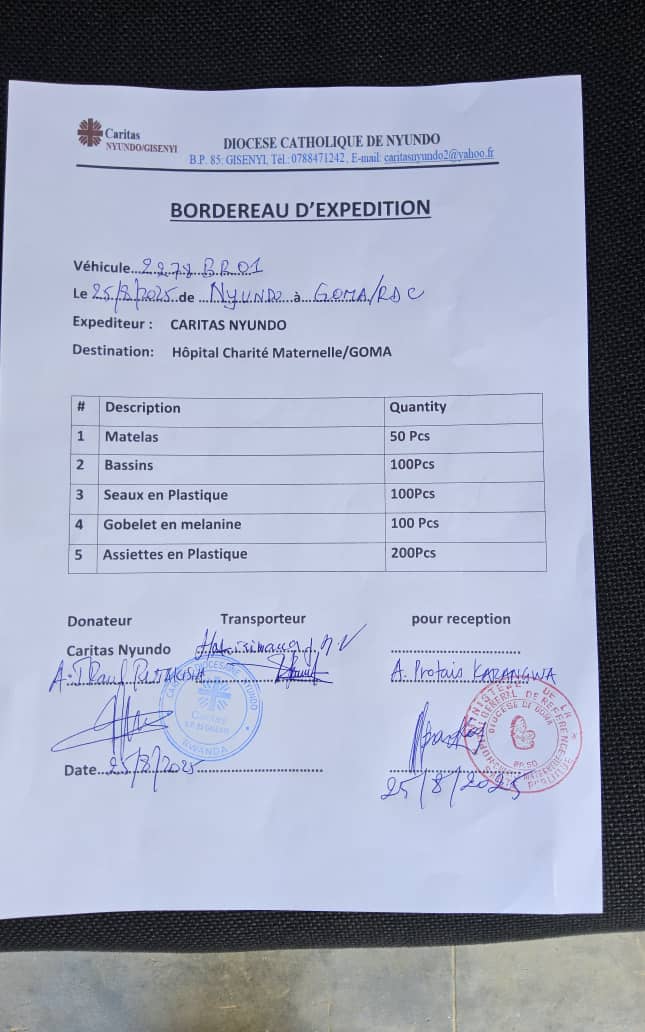 Caritas
NYUNDO/GISENYI
DIOCESE CATHOLIQUE DE NYUNDO
B.P. 85: GISENYI, Tél.:0788471242, E-mail: caritasnyundo2@yahoo.fr
BORDEREAU D'EXPEDITION
Véhicule...2278 BR01
Le 25/8/2025 de ...NYUNDO...à...GOMA/RDC
Expediteur : CARITAS NYUNDO
Destination: Hôpital Charité Maternelle/GOMA
# Description Quantity
1 Matelas 50 Pcs
2 Bassins 100Pcs
3 Seaux en Plastique 100Pcs
4 Gobelet en melanine 100 Pcs
5 Assiettes en Plastique 200Pcs
Donateur Transporteur pour reception
Caritas Nyundo
A. Protais KARANGWA
CARITAS DIOCESE DE NYUNDO
Caritas
RWANDA
DIOCESE DE GOMA
Date...25/8/2025
25/8/2025